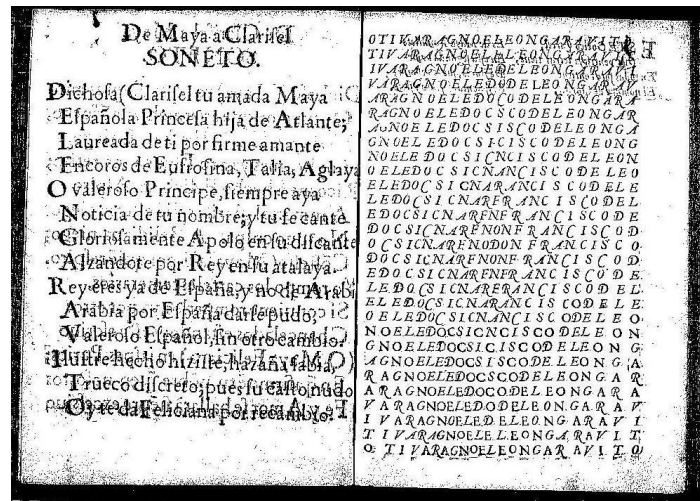 De Maya a Clarisel
SONETO.
Dichosa (Clarisel tu amada Maya
Española Princesa hija de Atlante;
Laureada de ti por firme amante
En coros de Eufrosina, Talia, Aglaya
O valeroso Principe, siempre aya
Noticia de tu nombre; y tu fe cante
Gloriosamente Apolo en su discante
Alzandote por Rey en su atalaya.
Rey eres ya de España, y no de Arabi
Arabia por España darse pudo,
Valeroso Español, sin otro cambio.
Ilustre hecho hiziste, hazaña sabia,
Trueco discreto; pues su casto nudo
Oy te da Feliciana por recambio.
OTIVARAGNOELEONGARAVITO
TIVARAGNOELELEONGARAVIT
IVARAGNOELEDELEONGARAVI
VARAGNOELEDODELEONGARAV
ARAGNOELEDOCODELEONGARA
RAGNOELEDOCSCODELEONGAR
AGNOELEDOCSISCODELEONGA
GNOELEDOCSICISCODELEONG
NOELEDOCSICNCISCODELEON
OELEDOCSICNANCISCODELEO
ELEDOCSICNARANCISCODELE
LEDOCSICNARFRANCISCODEL
EDOCSICNARFNFRANCISCODE
DOCSICNARFNONFRANCISCOD
OCSICNARFNODONFRANCISCO
DOCSICNARFNONFRANCISCOD
EDOCSICNARFNFRANCISCODE
LEDOCSICNARFRANCISCODEL
ELEDOCSICNARANCISCODELE
OELEDOCSICNANCISCODELEO
NOELEDOCSICNCISCODELEON
GNOELEDOCSICISCODELEONG
AGNOELEDOCSISCODELEONGA
RAGNOELEDOCSCODELEONGAR
ARAGNOELEDOCODELEONGARA
VARAGNOELEDODELEONGARAV
IVARAGNOELEDELEONGARAVI
TIVARAGNOELELEONGARAVIT
OTIVARAGNOELEONGARAVITO